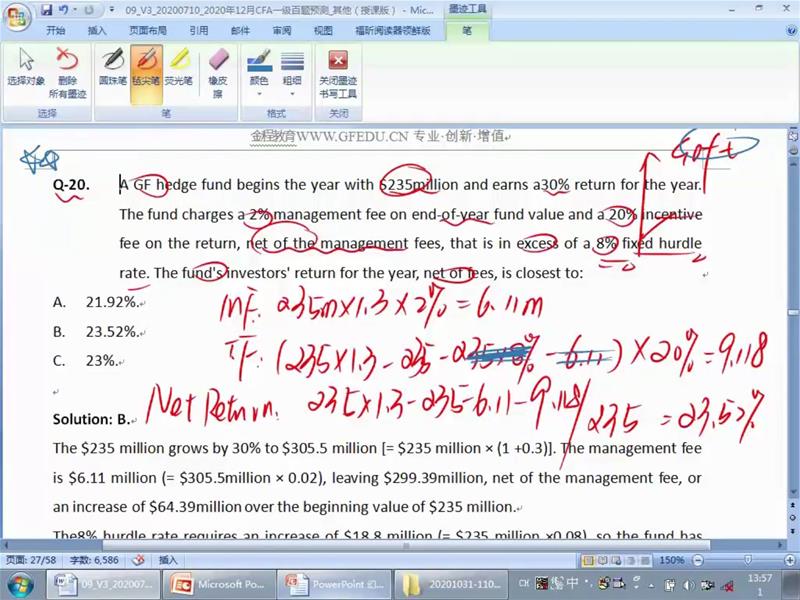 09_V3_20200710_2020年12月CFA一级百题预测_其他（授课版） - Mic...
墨迹工具
开始 插入 页面布局 引用 邮件 审阅 视图 福昕阅读器领鲜版 笔
选择对象 删除所有墨迹 圆珠笔 毡尖笔 荧光笔 橡皮擦 颜色 粗细 关闭墨迹书写工具
选择 笔 格式 关闭
金程教育WWW.GFEDU.CN 专业·创新·增值
Soft
Q-20. A GF hedge fund begins the year with $235million and earns a30% return for the year.
The fund charges a 2% management fee on end-of-year fund value and a 20% incentive
fee on the return, net of the management fees, that is in excess of a 8% fixed hurdle
rate. The fund's investors' return for the year, net of fees, is closest to:
=0
A. 21.92%.
MF: 235m×1.3×2%=6.11m
B. 23.52%.
IF: (235×1.3-235-235×8%-6.11)×20%=9.118
C. 23%.
Net Return: 235×1.3-235-6.11-9.118/235=23.52%
Solution: B.
The $235 million grows by 30% to $305.5 million [= $235 million × (1 +0.3)]. The management fee
is $6.11 million (= $305.5million × 0.02), leaving $299.39million, net of the management fee, or
an increase of $64.39million over the beginning value of $235 million.
The8% hurdle rate requires an increase of $18.8 million (= $235 million ×0.08), so the fund has
页面: 27/58 字数: 6,586 插入 150%
09_V3_202007... Microsoft Po... PowerPoint 幻... 20201031-110... CK 中 13:57
1